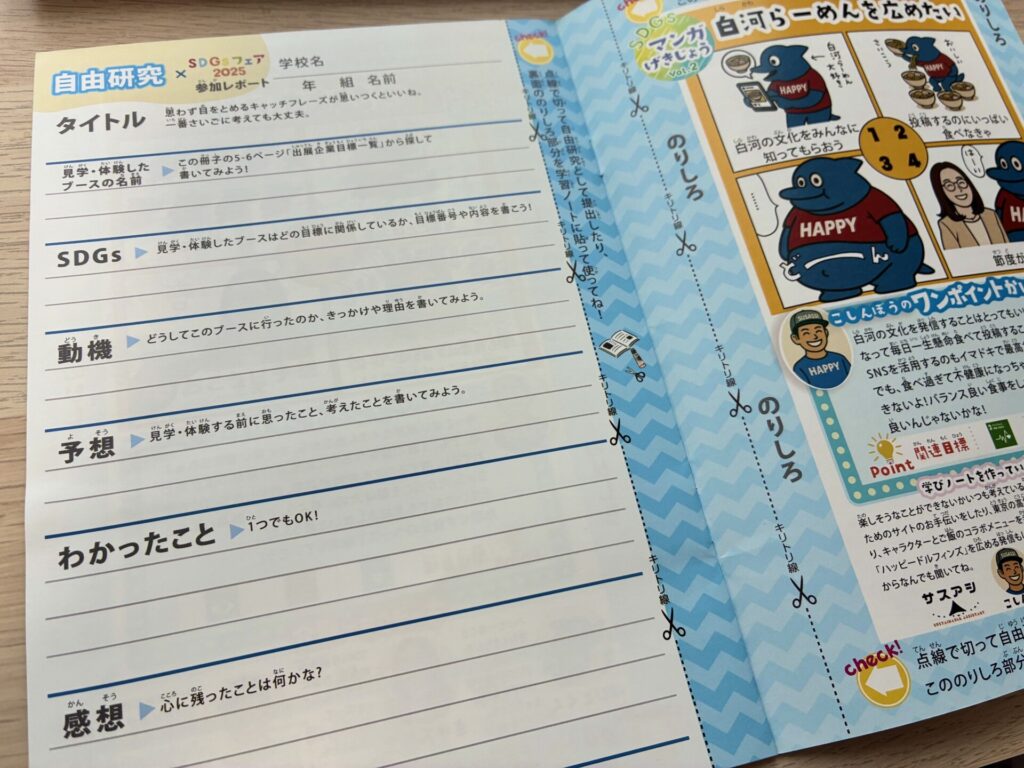 自由研究
×
SDGsフェア
2025
参加レポート
学校名
年 組 名前
タイトル
思わず目をとめるキャッチフレーズが思いつくといいね。
一番さいごに考えても大丈夫。
見学・体験した
ブースの名前
この冊子の5-6ページ「出展企業目標一覧」から探して
書いてみよう!
SDGs
見学・体験したブースはどの目標に関係しているか、目標番号や内容を書こう!
動機
どうしてこのブースに行ったのか、きっかけや理由を書いてみよう。
予想
見学・体験する前に思ったこと、考えたことを書いてみよう。
わかったこと
1つでもOK!
感想
心に残ったことは何かな?
check!
点線で切って自由研究として提出したり、
裏面ののりしろ部分を学習ノートに貼って使ってね!
キリトリ線
キリトリ線
キリトリ線
キリトリ線
キリトリ線
キリトリ線
キリトリ線
のりしろ
のりしろ
check!
のりしろ
SDGs
マンガ
げきじょう
vol.2
白河らーめんを広めたい
HAPPY
白河の文化をみんなに
知ってもらおう
おいしい
HAPPY
投稿するのにいっぱい
食べなきゃ
1 2
3 4
HAPPY
はーい
HAPPY
節度が
こしんぼうのワンポイントか
SUSASU
HAPPY
白河の文化を発信することはとってもい
なって毎日一生懸命食べて投稿するこ
SNSを活用するのもイマドキで最高
でも、食べ過ぎて不健康になっちゃ
きないよ!バランス良い食事をし
良いんじゃないかな!
Point
関連目標
学びノートを作ってい
楽しそうなことができないかいつも考えている
ためのサイトのお手伝いをしたり、東京の高
り、キャラクターとご飯のコラボメニューを
「ハッピードルフィンズ」を広める発信も
からなんでも聞いてね。
サスアシ
SUSTAINABLE ASSISTANT
こしん
check!
点線で切って自由
こののりしろ部分